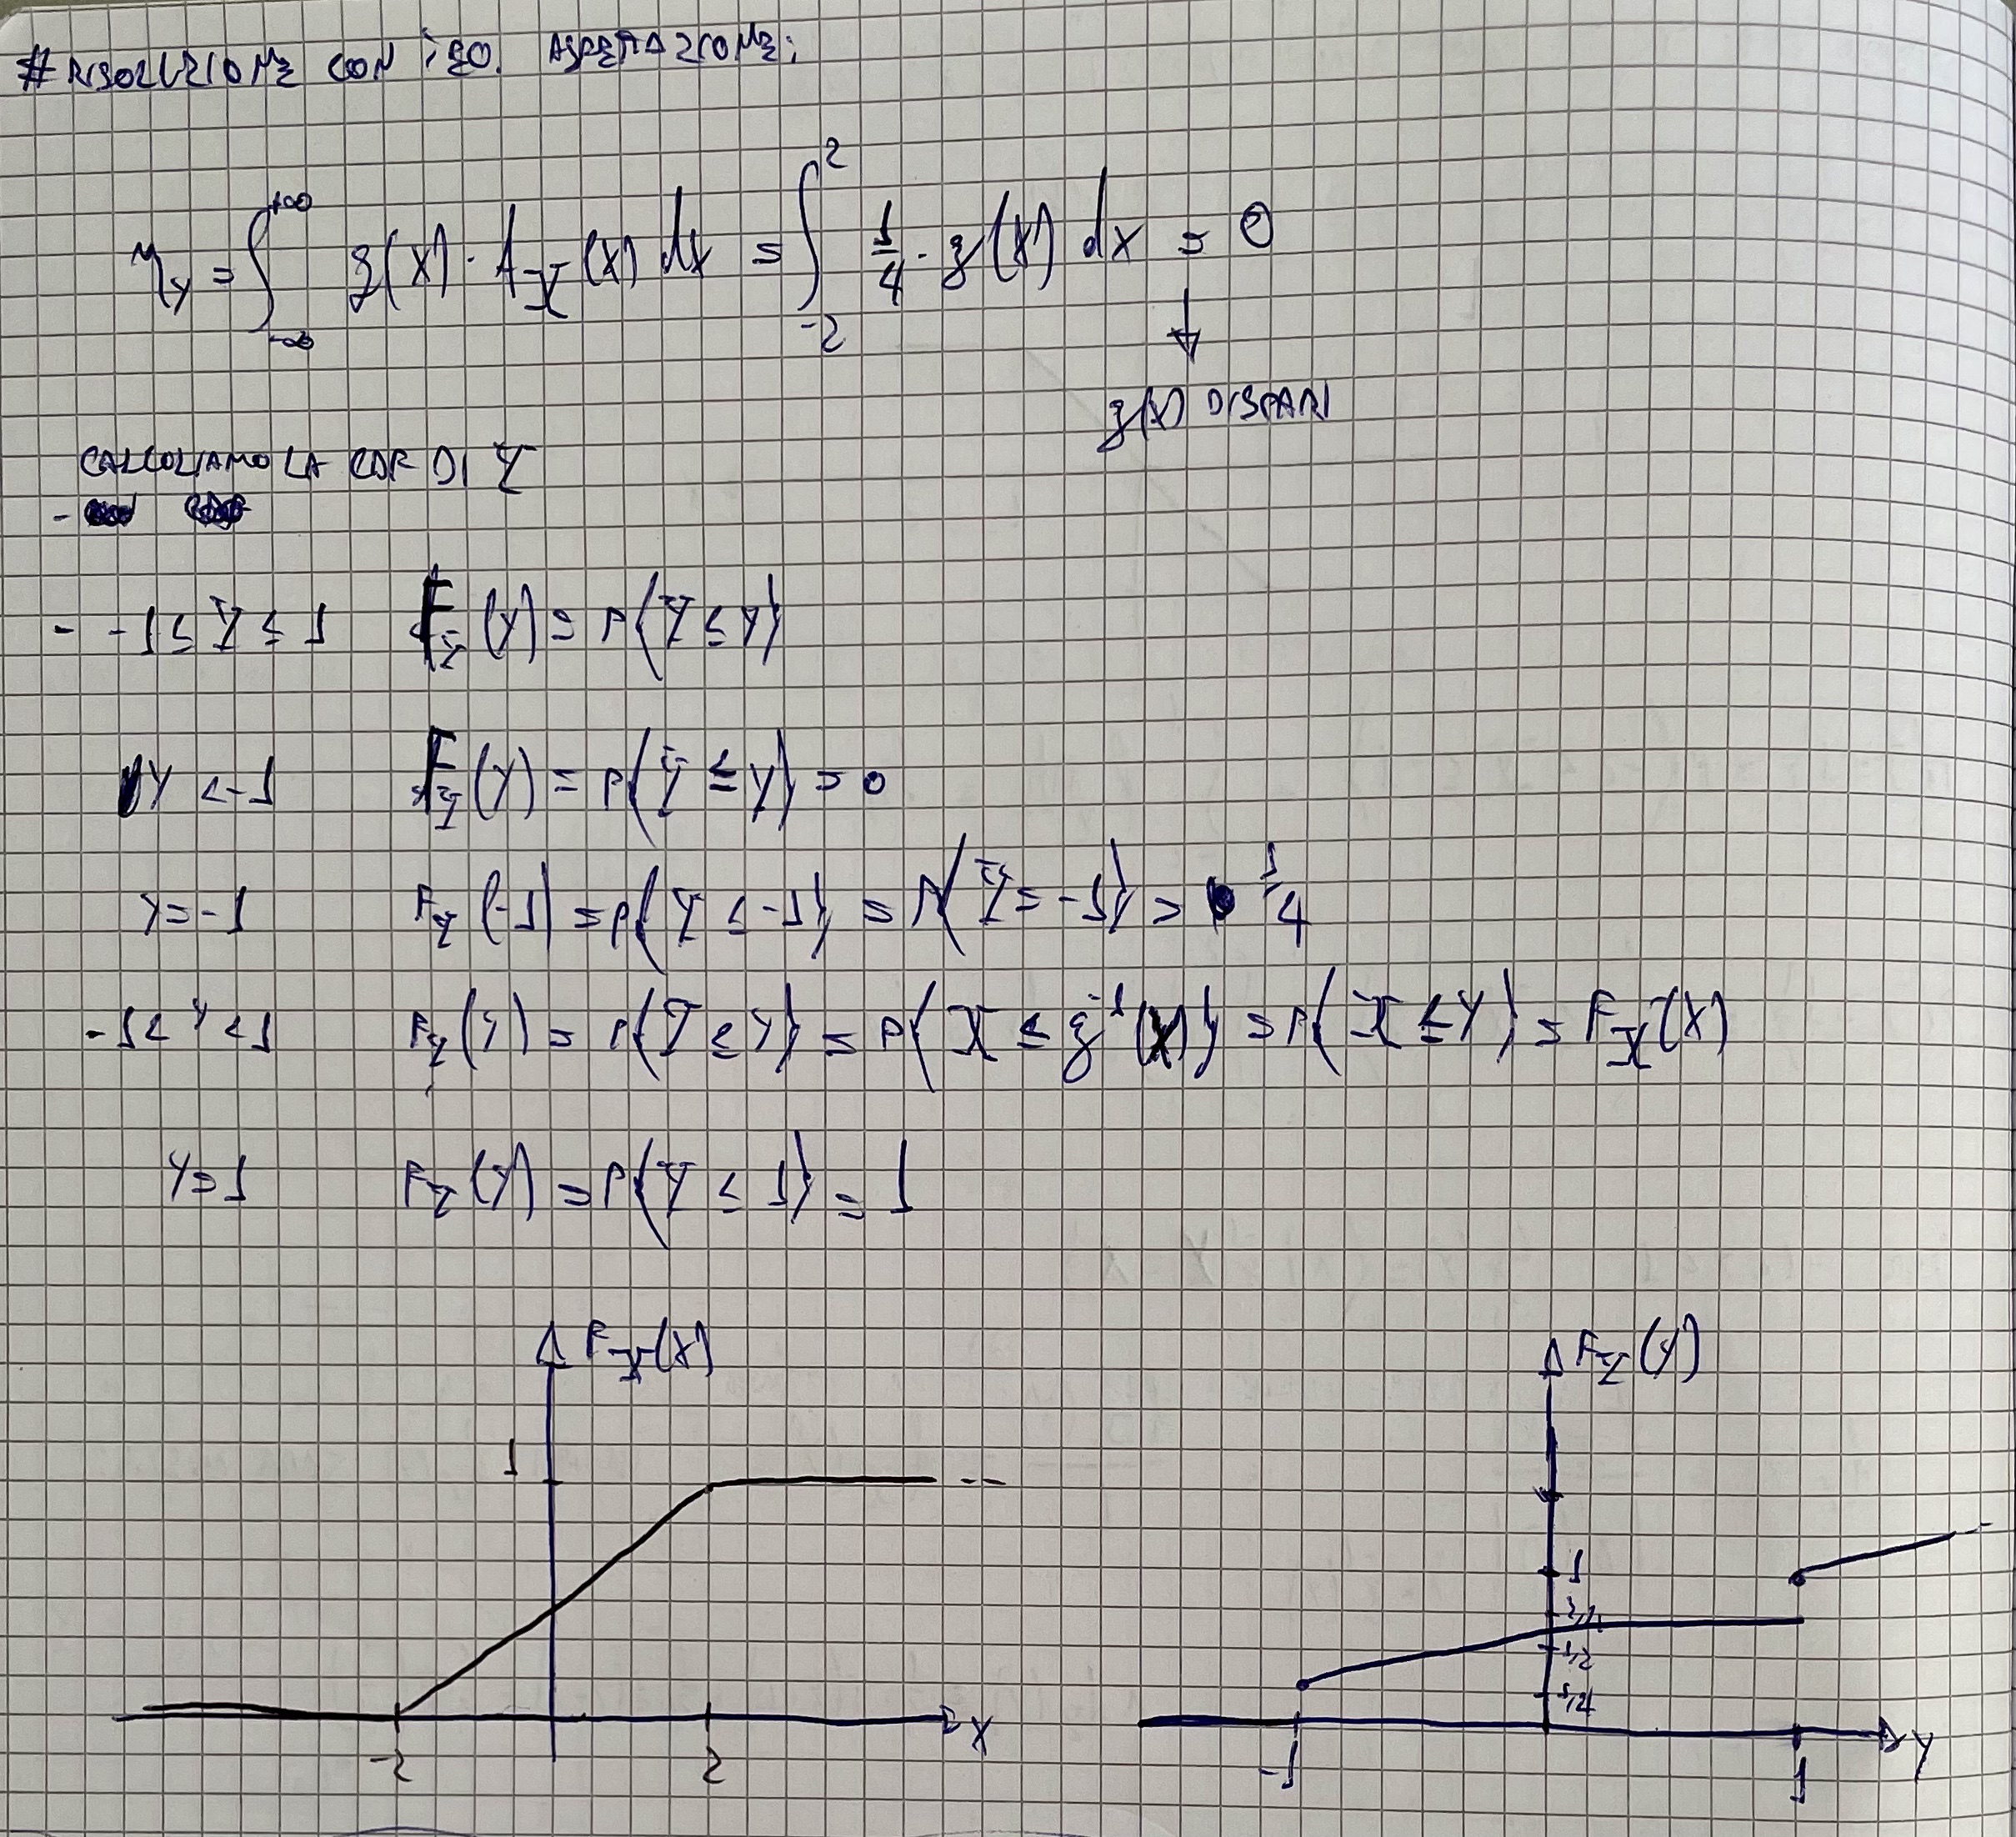 # RISOLUZIONE CON TEO. ASPETTAZIONE:
η_Y = ∫_{-∞}^{+∞} g(x) · f_X(x) dx = ∫_{-2}^{2} 1/4 · g(x) dx = 0
↓
g(x) DISPARI
CALCOLIAMO LA CDF DI Y
- -1 ≤ Y ≤ 1 F_Y(y) = P{Y ≤ y}
y < -1 F_Y(y) = P{Y ≤ y} = 0
y = -1 F_Y(-1) = P{Y ≤ -1} = P{Y = -1} = 1/4
-1 < y < 1 F_Y(y) = P{Y ≤ y} = P{X ≤ g^-1(y)} = P{X ≤ y} = F_X(x)
y = 1 F_Y(y) = P{Y ≤ 1} = 1
F_X(x)
1
-2 2 x
F_Y(y)
1
3/4
1/2
1/4
-1 1 y